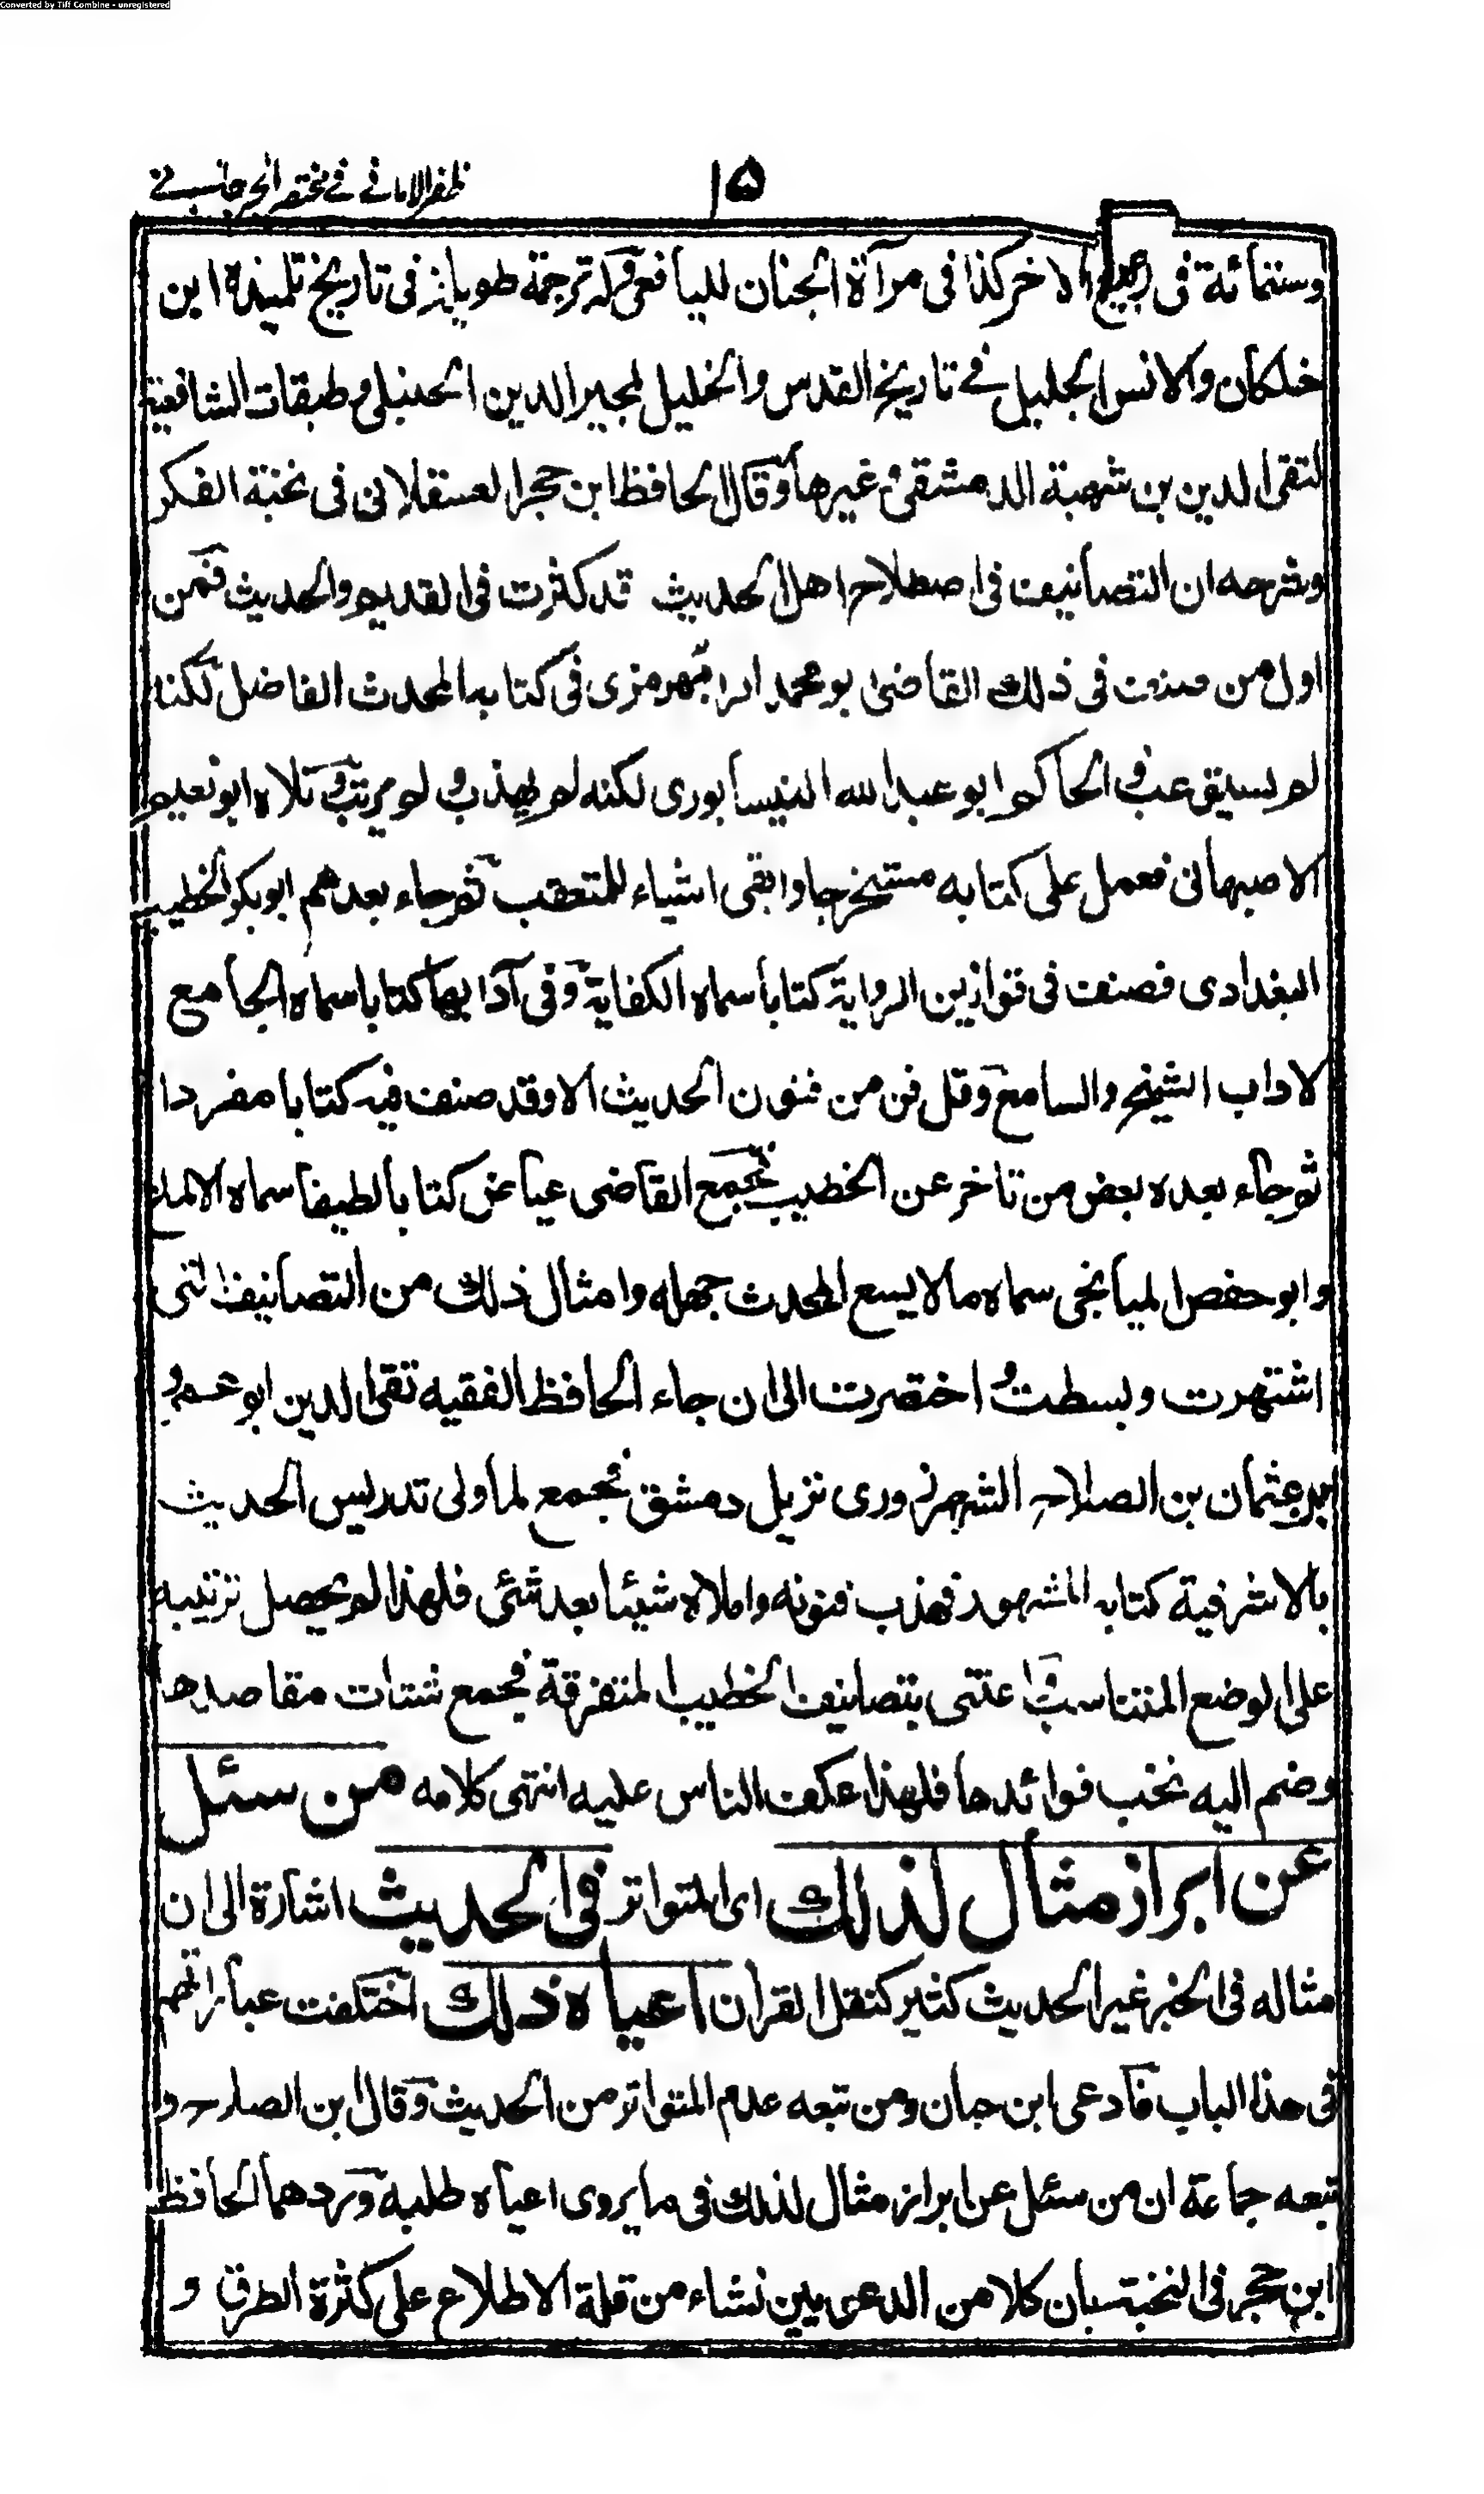 Converted by Tiff Combine - unregistered
ظفر الاماني في مختصر الجرجاني
١٥
وستمائة فى ربيع الاخر كذا فى مرآة الجنان لليافعى وله ترجمة طويلة فى تاريخ تلميذه ابن
خلكان والانس الجليل في تاريخ القدس والخليل لمجير الدين الحنبلى وطبقات الشافعية
لتقى الدين بن شهبة الدمشقى وغيرها وقال الحافظ ابن حجر العسقلانى فى نخبة الفكر
وشرحه ان التصانيف فى اصطلاح اهل الحديث قد كثرت فى القديم والحديث فمن
اول من صنف فى ذلك القاضى ابو محمد الرامهرمزى فى كتابه المحدث الفاضل لكنه
لم يستوعب والحاكم ابو عبد الله النيسابورى لكنه لم يهذب ولم يرتب وتلاه ابو نعيم
الاصبهانى فعمل على كتابه مستخرجا وابقى اشياء للمتعقب ثم جاء بعدهم ابو بكر الخطيب
البغدادى فصنف فى قوانين الرواية كتابا سماه الكفاية وفى آدابها كتابا سماه الجامع
لاداب الشيخ والسامع وقل فن من فنون الحديث الا وقد صنف فيه كتابا مفردا
ثم جاء بعده بعض من تاخر عن الخطيب فجمع القاضى عياض كتابا لطيفا سماه الالماع
وابو حفص الميانجى سماه مالا يسع المحدث جهله وامثال ذلك من التصانيف التى
اشتهرت وبسطت واختصرت الى ان جاء الحافظ الفقيه تقى الدين ابو عمرو
بن عثمان بن الصلاح الشهرزورى نزيل دمشق فجمع لما ولى تدريس الحديث
بالاشرفية كتابه المشهور فهذب فنونه واملاه شيئا بعد شئى فلهذا لم يحصل ترتيبه
على الوضع المتناسب واعتنى بتصانيف الخطيب المتفرقة فجمع شتات مقاصدها
وضم اليه نخب فوائدها فلهذا عكف الناس عليه انتهى كلامه من سئل
عن ابراز مثال لذلك اى المتواتر فى الحديث اشارة الى ان
مثاله فى الخبر غير الحديث كثير كنقل القران اعياه ذلك اختلفت عباراتهم
فى هذا الباب فادعى ابن حبان ومن تبعه عدم المتواتر من الحديث وقال ابن الصلاح و
تبعه جماعة ان من سئل عن ابراز مثال لذلك فى ما يروى اعياه طلبه وردهما الحافظ
ابن حجر فى النخبة بان كلا من الدعويين نشاء من قلة الاطلاع على كثرة الطرق و